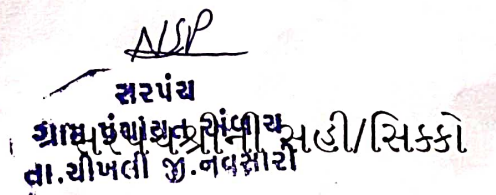 સરપંચ
ગ્રામ પંચાયત
સરપંચશ્રીની સહી/સિક્કો
તા.ચીખલી જી.નવસારી